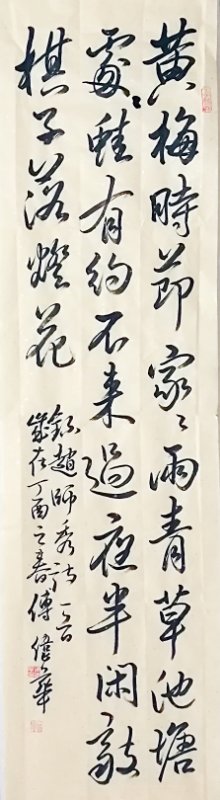 黄梅時節家〻雨青草池塘
處〻蛙有約不来過夜半閑敲
棋子落燈花
録趙師秀詩一首
歲在丁酉之春傅偉華